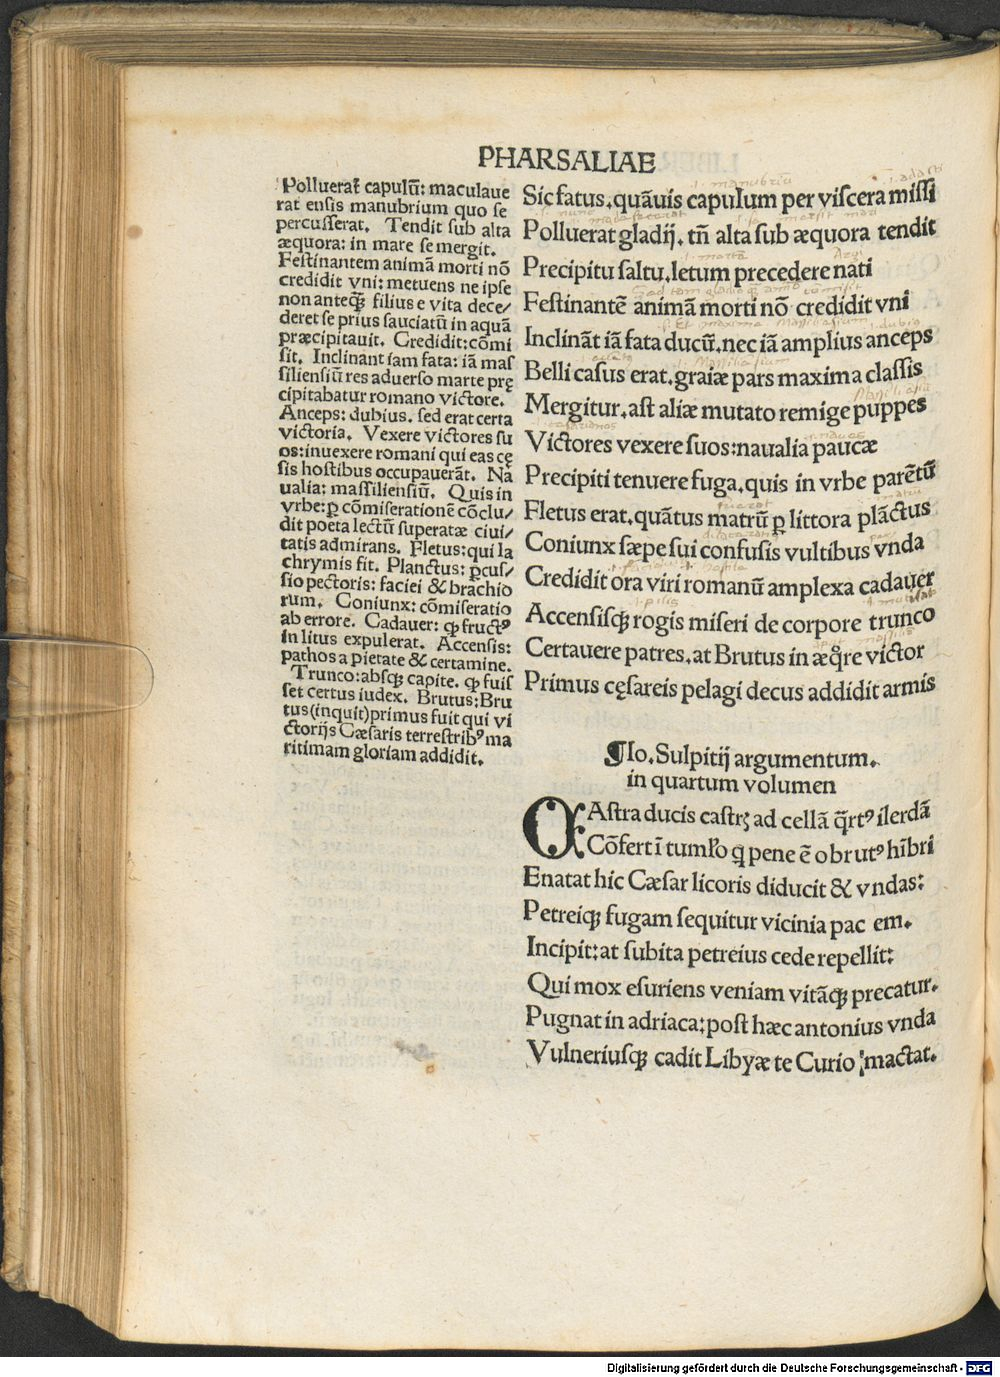 PHARSALIAE
Polluerat̃ capulũ: maculaue
rat ensis manubrium quo se
percusserat. Tendit sub alta
æquora: in mare se mergit.
Festinantem animã morti nõ
credidit vni: metuens ne ipse
non anteq̃ filius e vita dece/
deret se prius sauciatũ in aquã
præcipitauit. Credidit: cõmi
sit. Inclinant iam fata: iã mas
siliensiũ res aduerso marte prę
cipitabatur romano victore.
Anceps: dubius. sed erat certa
victoria. Vexere victores su
os: inuexere romani qui eas cę
sis hostibus occupauerãt. Na
ualia: massiliensiũ. Quis in
vrbe: ꝑ cõmiserationẽ cõclu/
dit poeta lectũ superatæ ciui/
tatis admirans. Fletus: qui la
chrymis fit. Planctus: ꝑcus/
sio pectoris: faciei & brachio
rum. Coniunx: cõmiseratio
ab errore. Cadauer: ꝙ fructꝰ
in litus expulerat. Accensis:
pathos a pietate & certamine.
Trunco: absqꝫ capite. ꝙ fuis
set certus iudex. Brutus: Bru
tus (inquit) primus fuit qui vi
ctorijs Cæsaris terrestribꝰ ma
ritimam gloriam addidit.
Sic fatus. quãuis capulum per viscera missi
Polluerat gladij. tñ alta sub æquora tendit
Precipitu saltu. letum precedere nati
Festinantẽ animã morti nõ credidit vni
Inclinãt iã fata ducũ. nec iã amplius anceps
Belli casus erat. graiæ pars maxima classis
Mergitur. ast aliæ mutato remige puppes
Victores vexere suos: naualia paucæ
Precipiti tenuere fuga. quis in vrbe parẽtũ
Fletus erat. quãtus matrũ ꝑ littora plãctus
Coniunx sæpe sui confusis vultibus vnda
Credidit ora viri romanũ amplexa cadauer
Accensisqꝫ rogis miseri de corpore trunco
Certauere patres. at Brutus in æq̊re victor
Primus cęsareis pelagi decus addidit armis
¶Io. Sulpitij argumentum.
in quartum volumen
CAstra ducis castrꝭ ad cellã q̃rtꝰ ilerdã
Cõfert ĩ tumło q pene ẽ obrutꝰ hĩbri
Enatat hic Cæsar licoris diducit & vndas:
Petreiqꝫ fugam sequitur vicinia pac em.
Incipit: at subita petreius cede repellit:
Qui mox esuriens veniam vitãqꝫ precatur.
Pugnat in adriaca: post hæc antonius vnda
Vulneriusqꝫ cadit Libyæ te Curio mactat.
Digitalisierung gefördert durch die Deutsche Forschungsgemeinschaft - DFG